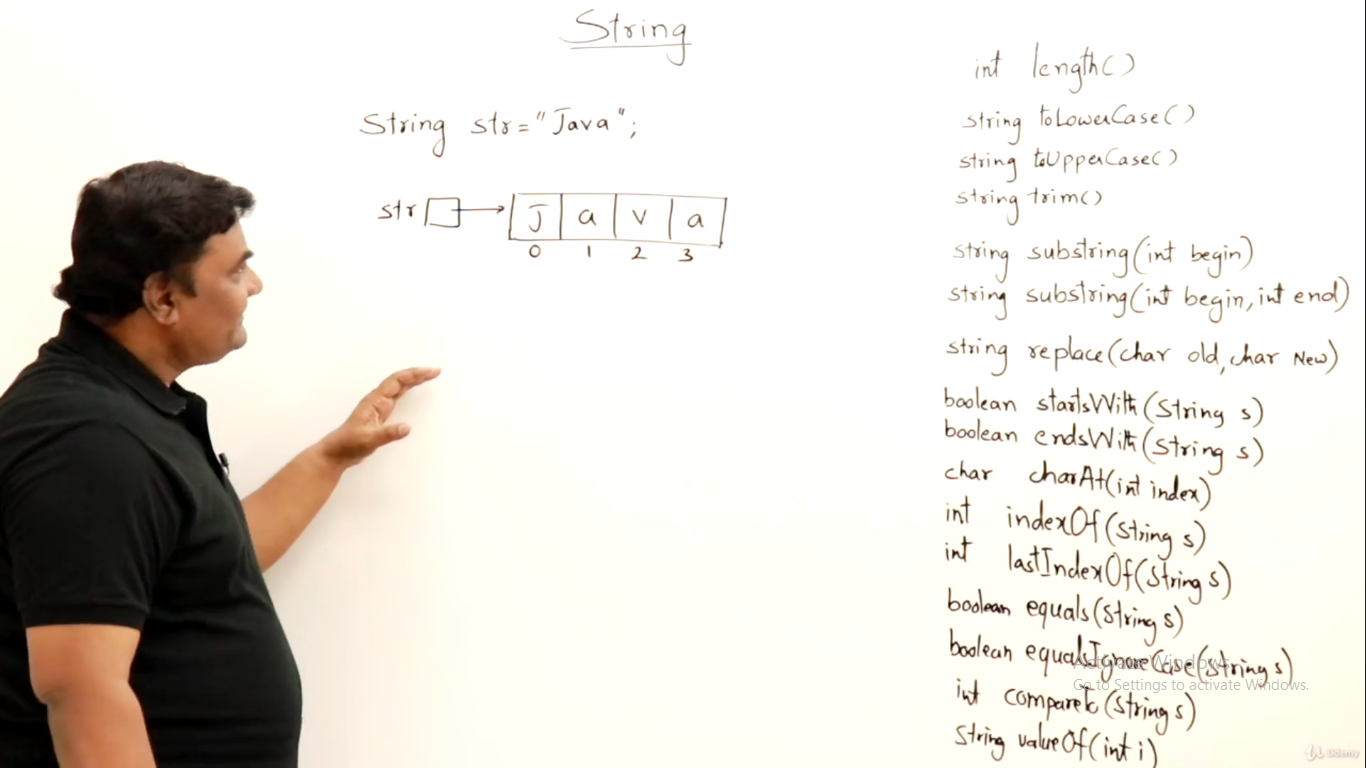 String
String str="Java";
str
J a v a
0 1 2 3
int length()
string toLowerCase()
string toUpperCase()
string trim()
string substring(int begin)
string substring(int begin, int end)
string replace(char old, char New)
boolean startsWith(String s)
boolean endsWith(String s)
char charAt(int index)
int indexOf(String s)
int lastIndexOf(String s)
boolean equals(String s)
boolean equalsIgnoreCase(String s)
int compareTo(String s)
String valueOf(int i)
Activate Windows
Go to Settings to activate Windows.
Udemy